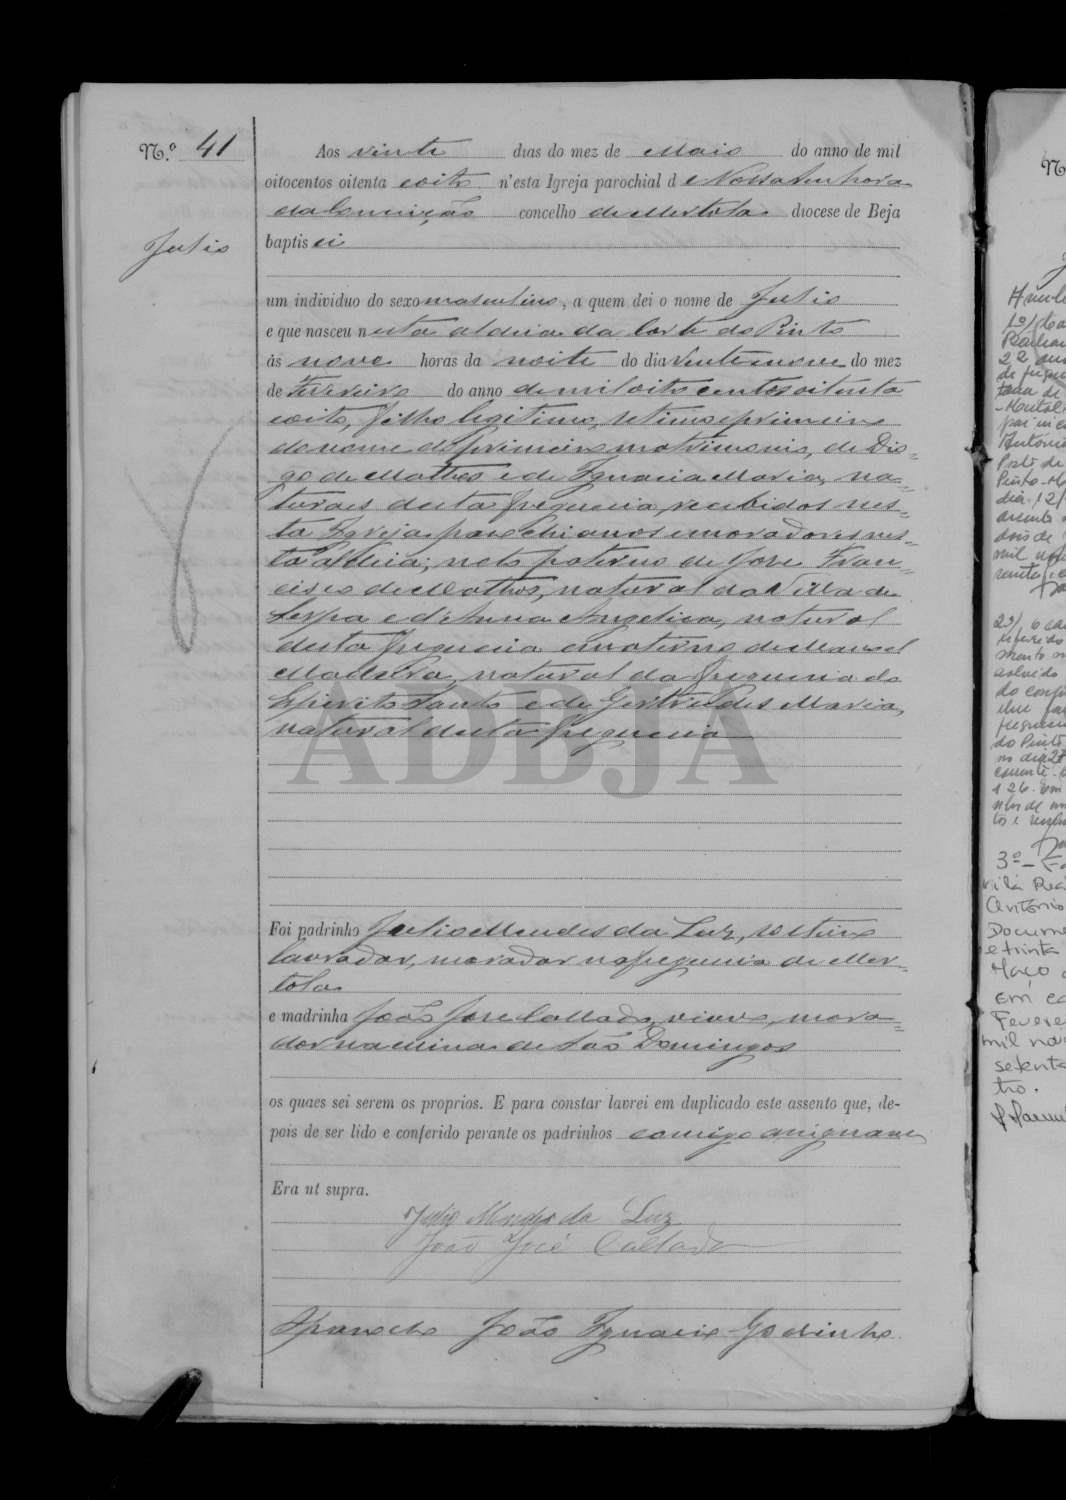 N.º 41
Julio
Aos vinte dias do mez de Maio do anno de mil
oitocentos oitenta e oito n'esta Igreja parochial de Nossa Senhora
da Conceição concelho de Mertola diocese de Beja
baptisei
um individuo do sexo masculino, a quem dei o nome de Julio
e que nasceu nesta aldeia da Corte do Pinto
ás nove horas da noite do dia vinte nove do mez
de Fevereiro do anno de mil oito centos oitenta
e oito, filho legitimo, setimo e primeiro
do nome do primeiro matrimonio, de Dio=
go de Mathos e de Ignacia Maria, na=
turaes desta freguezia, recebidos nes=
ta Igreja parochial e moradores nes=
ta aldeia; neto paterno de José Fran=
cisco de Mathos, natural da Villa de
Serpa e d'Anna Angelica, natural
desta freguezia e materno de Manoel
Madeira, natural da freguezia do
Espirito Santo e de Gertrudes Maria,
natural desta freguezia
ADBJA
Foi padrinho Julio Mendes da Luz, solteiro
lavrador, morador na freguezia de Mer=
tola
e madrinha João José Callado, viuvo, mora=
dor na Mina de São Domingos
os quaes sei serem os proprios. E para constar lavrei em duplicado este assento que, de-
pois de ser lido e conferido perante os padrinhos comigo assignaram
Era ut supra.
Julio Mendes da Luz
João José Callado
O Parocho João Ignacio Godinho
N
1º/
22
de
Antonio
Pinto
dia 12/
dois de
mil
2º/ O
referido
do Pinto
no dia
3º
Vila Rea
Antonio
Docume
e trinta
Março
em
Fevere
mil no
setenta
tro.